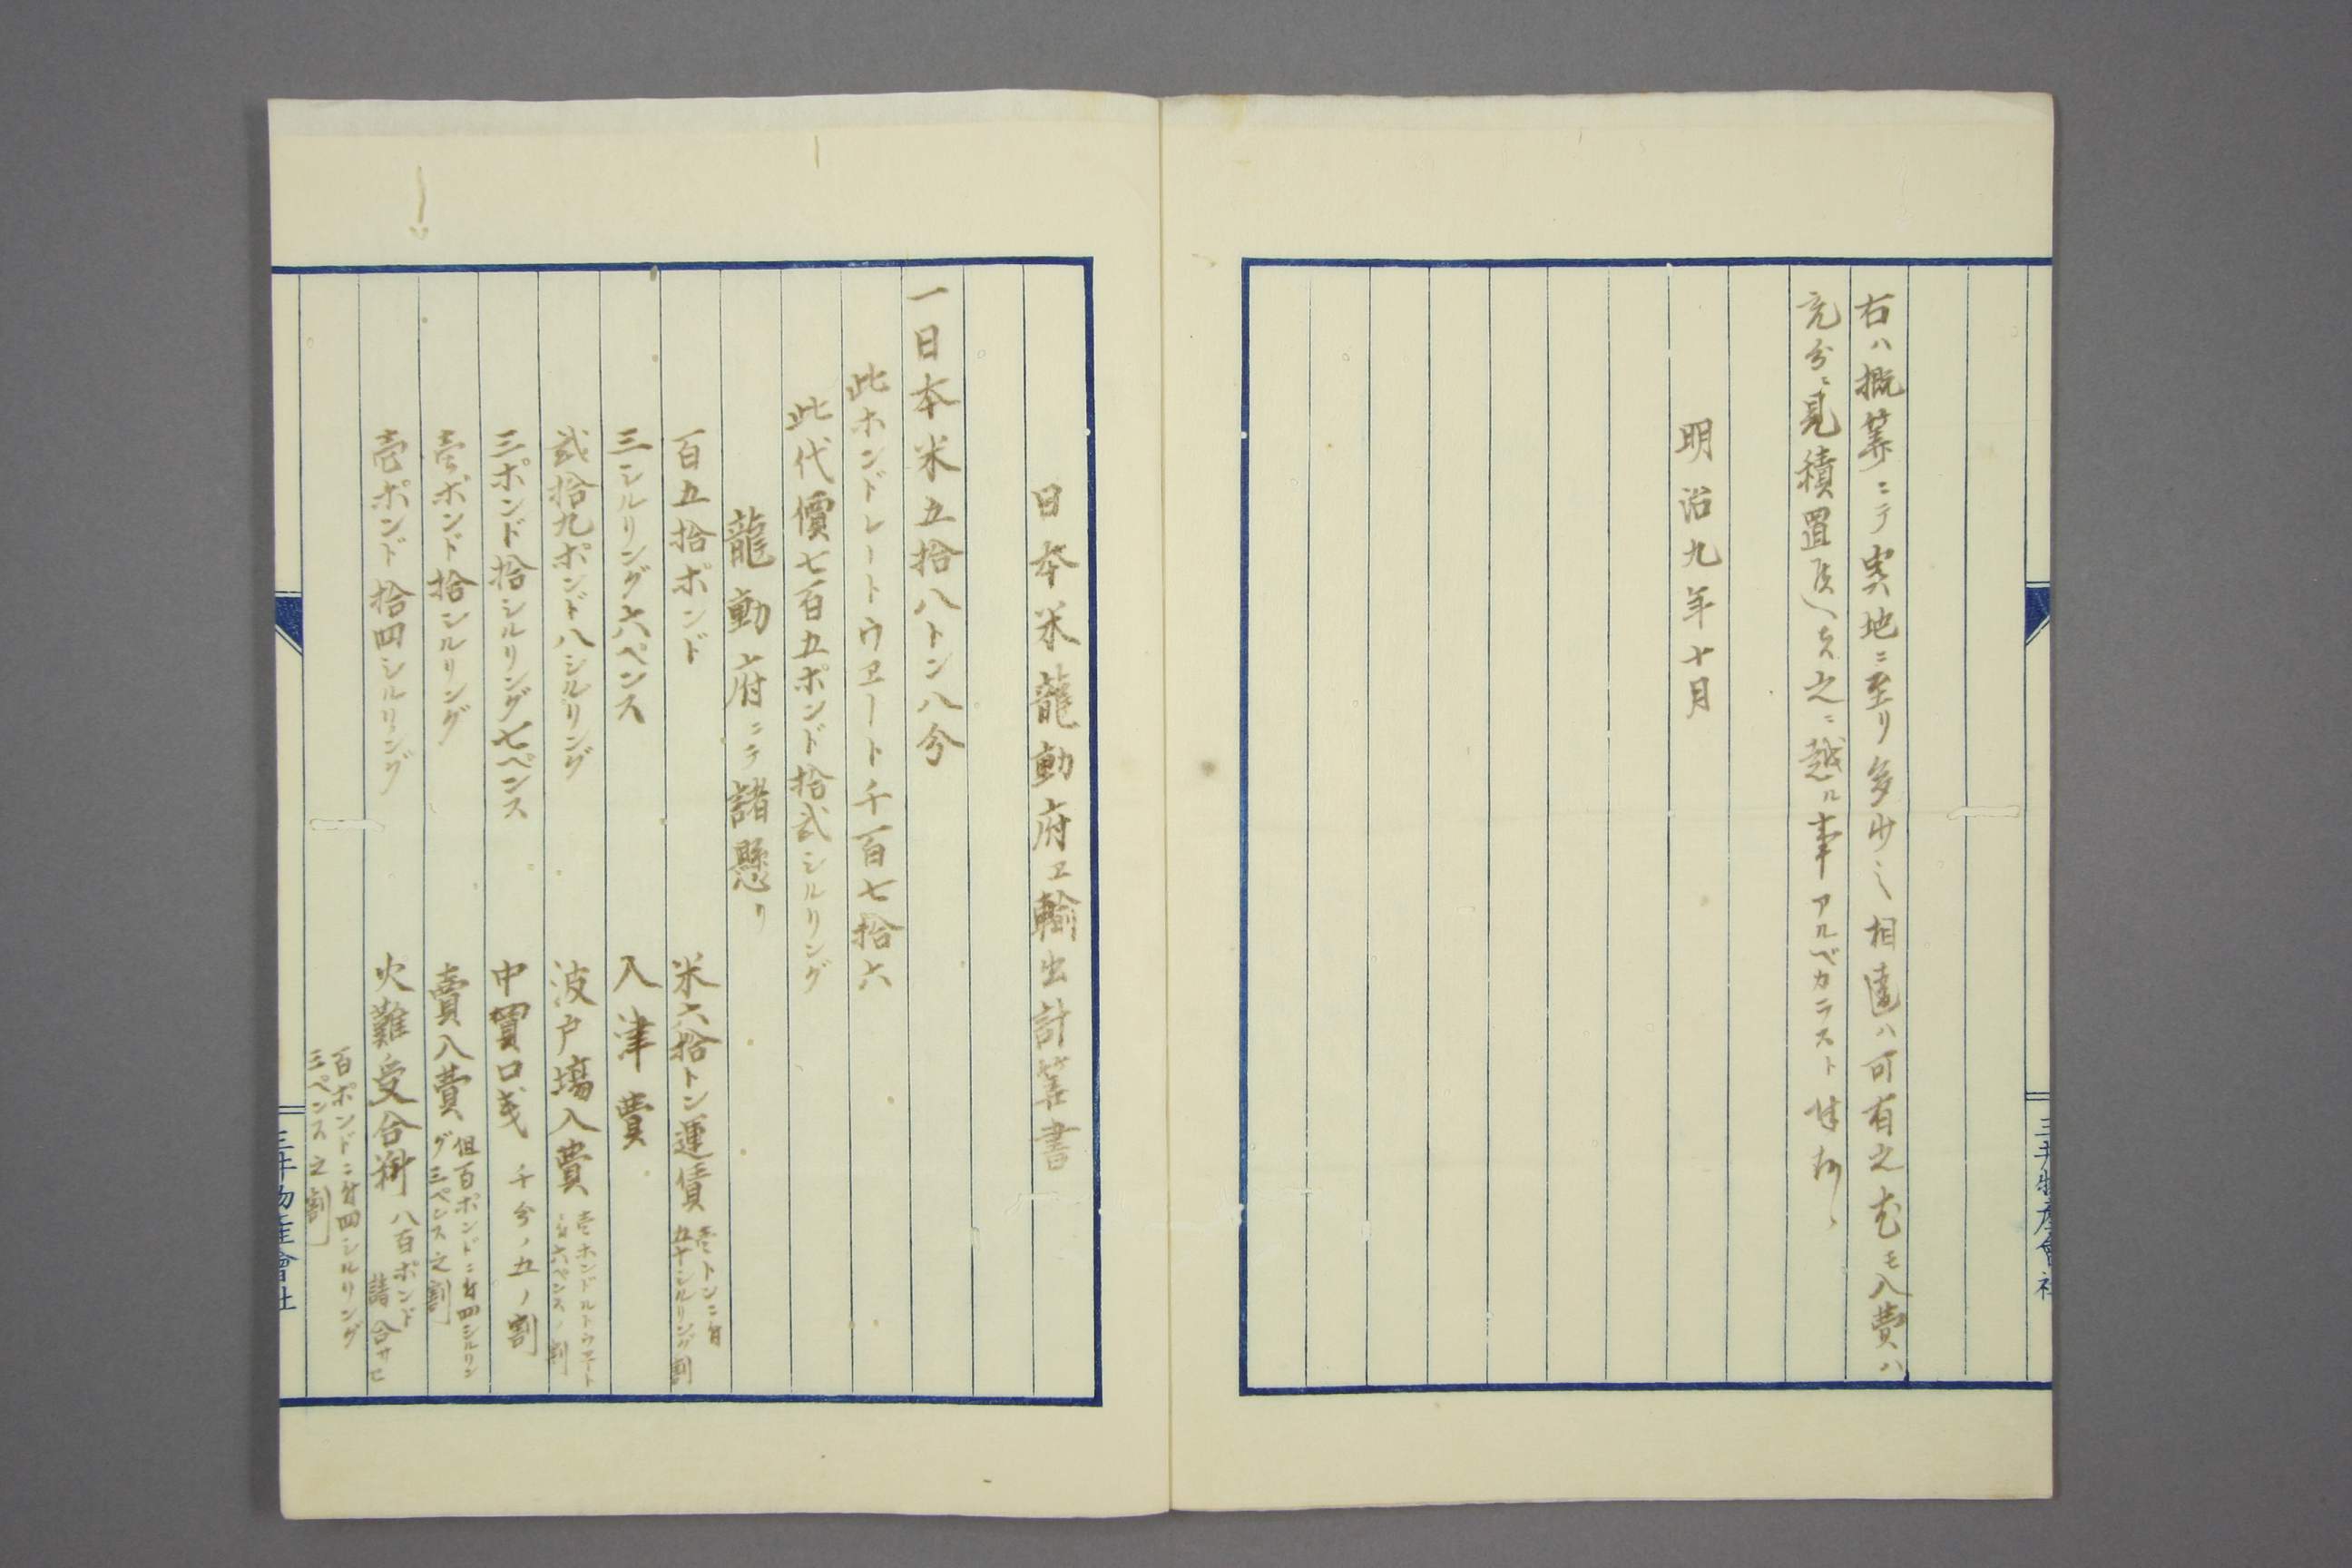 右ハ概算ニテ実地ニ至リ多少ノ相違ハ可有之尤モ入費ハ
充分ニ見積置候ヘ共之ニ越ル事アルベカラスト
明治九年十月
三井物産會社
日本米龍動府ヱ輸出計算書
一日本米五拾八トン八分
此ホンドレートウヱート千百七拾六
此代價七百五ポンド拾弐シルリング
龍動府ニテ諸懸リ
百五拾ポンド 米六拾トン運賃 壱トンニ付五十シルリング割
三シルリング六ペンス 入津費
弐拾九ポンド八シルリング 波戸塲入費 壱ホンドルトウヱートニ付六ペンスノ割
三ポンド拾シルリング七ペンス 中買口戋 千分ノ五ノ割
壱ポンド拾シルリング 賣入費 但百ポンドニ付四シルリング三ペンス之割
壱ポンド拾四シルリング 火難受合料 八百ポンド請合サセ
百ポンドニ付四シルリング三ペンス之割
三井物産會社